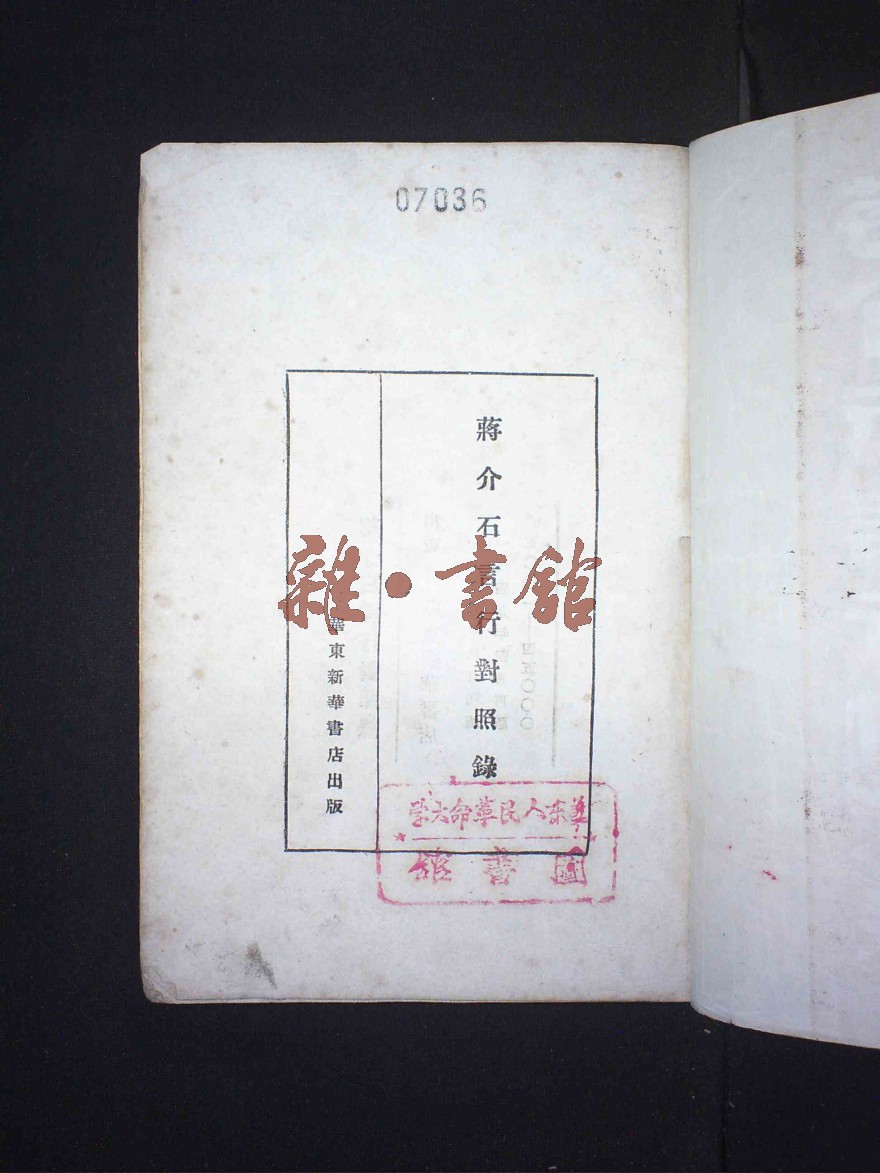 07036
蔣介石言行對照錄
華東新華書店出版
雜·書館
華东人民革命大学
圖書館